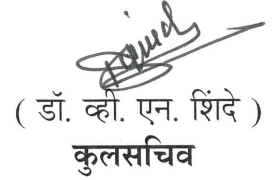 ( डॉ. व्ही. एन. शिंदे )
कुलसचिव